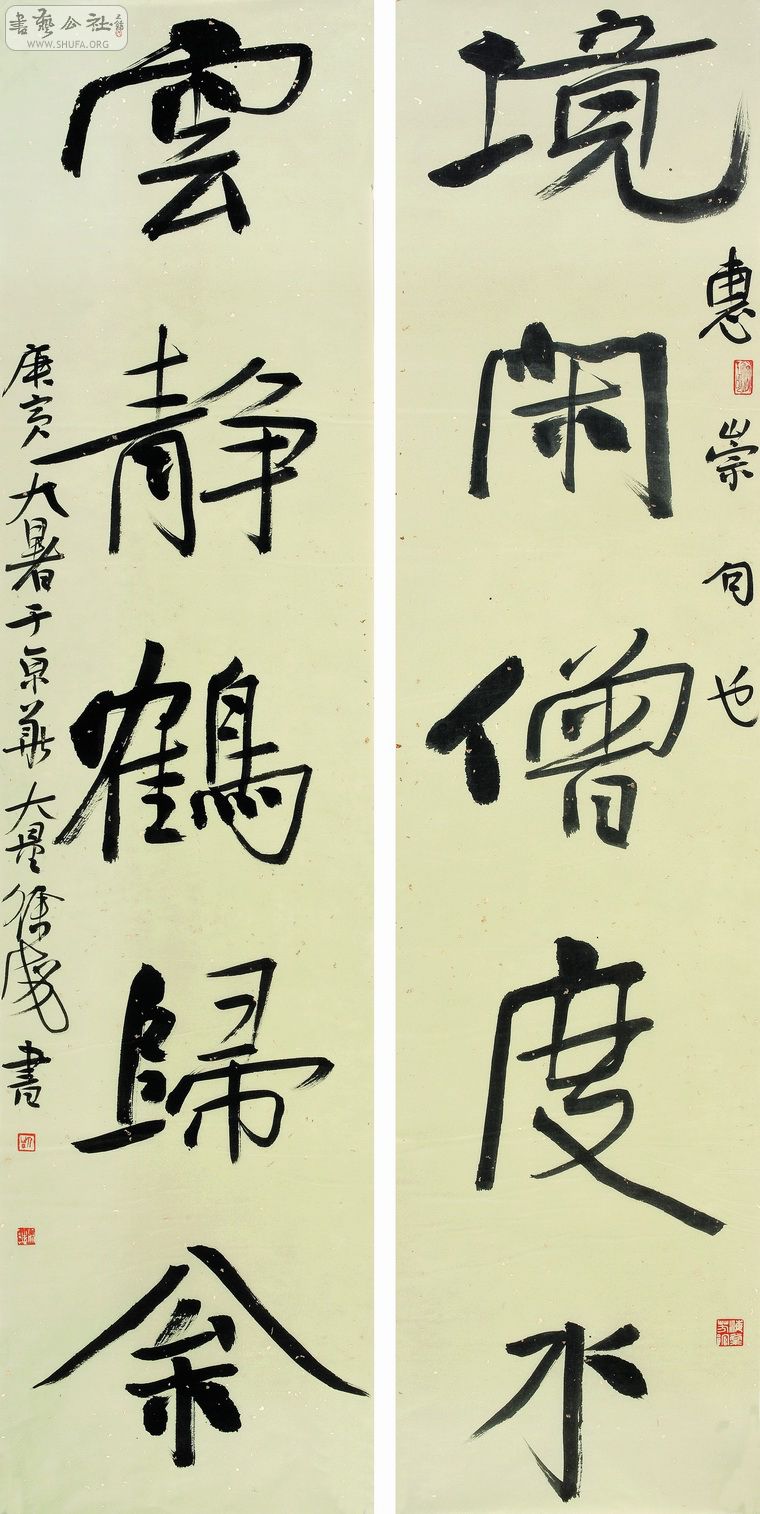 境閑僧度水
惠崇句也
雲静鶴歸枀
庚寅大暑于京華大量徐書
書藝公社
WWW.SHUFA.ORG